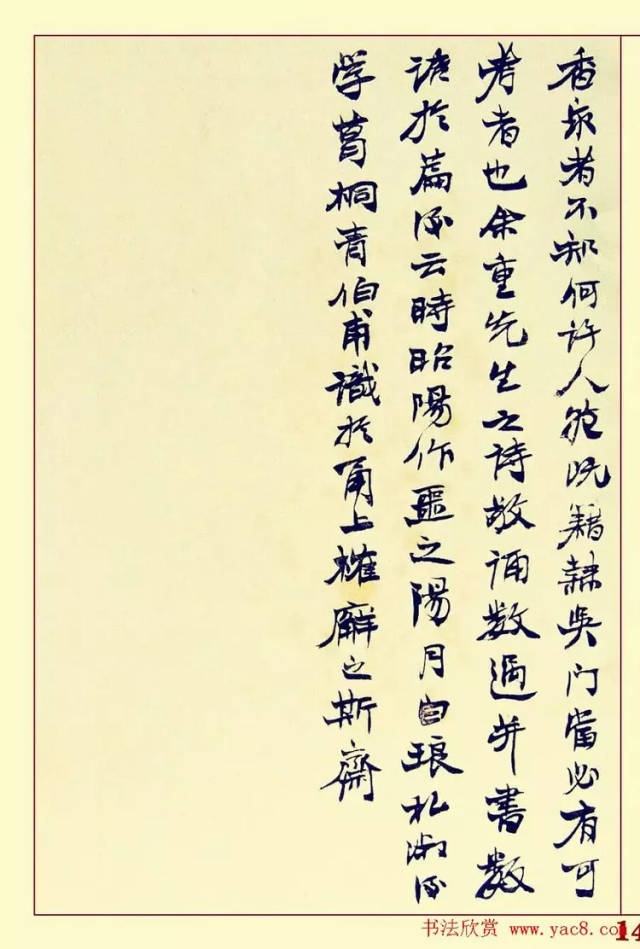 香泉者不知何许人能既籍隶吳门當必有可
考者也余重先生之诗故诵数過并書数
语於篇後云時昭陽作噩之陽月白琅私淑後
学葛桐青伯甫識於甬上榷廨之斯齋
书法欣赏 www.yac8.com
14